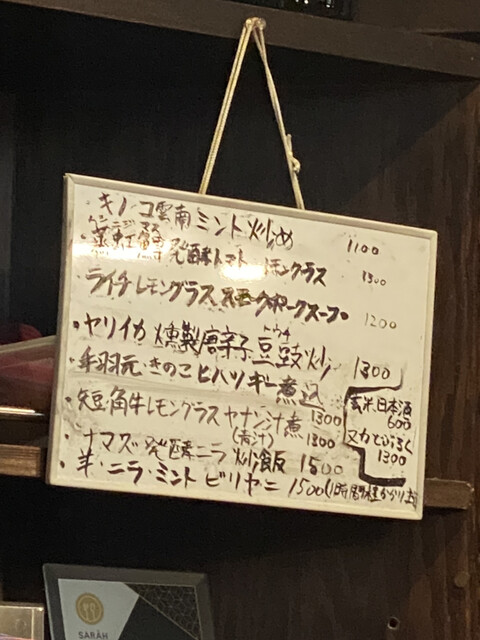 ・キノコ雲南ミント炒め 1100
・蒸 発酵トマトレモングラス 1300
・ライチレモングラス スープ 1200
トウチ
・ヤリイカ燻製唐辛子豆豉炒 1300
・手羽元きのこヒハツギー煮込
・短角牛レモングラスヤナン汁煮 1300
(青汁)
・ナマズ発酵ニラ炒飯 1300
・羊・ニラ・ミントビリヤニ 1500(1時間程かかります)
玄米日本酒
600
又はどぶろく
1300
SARAH